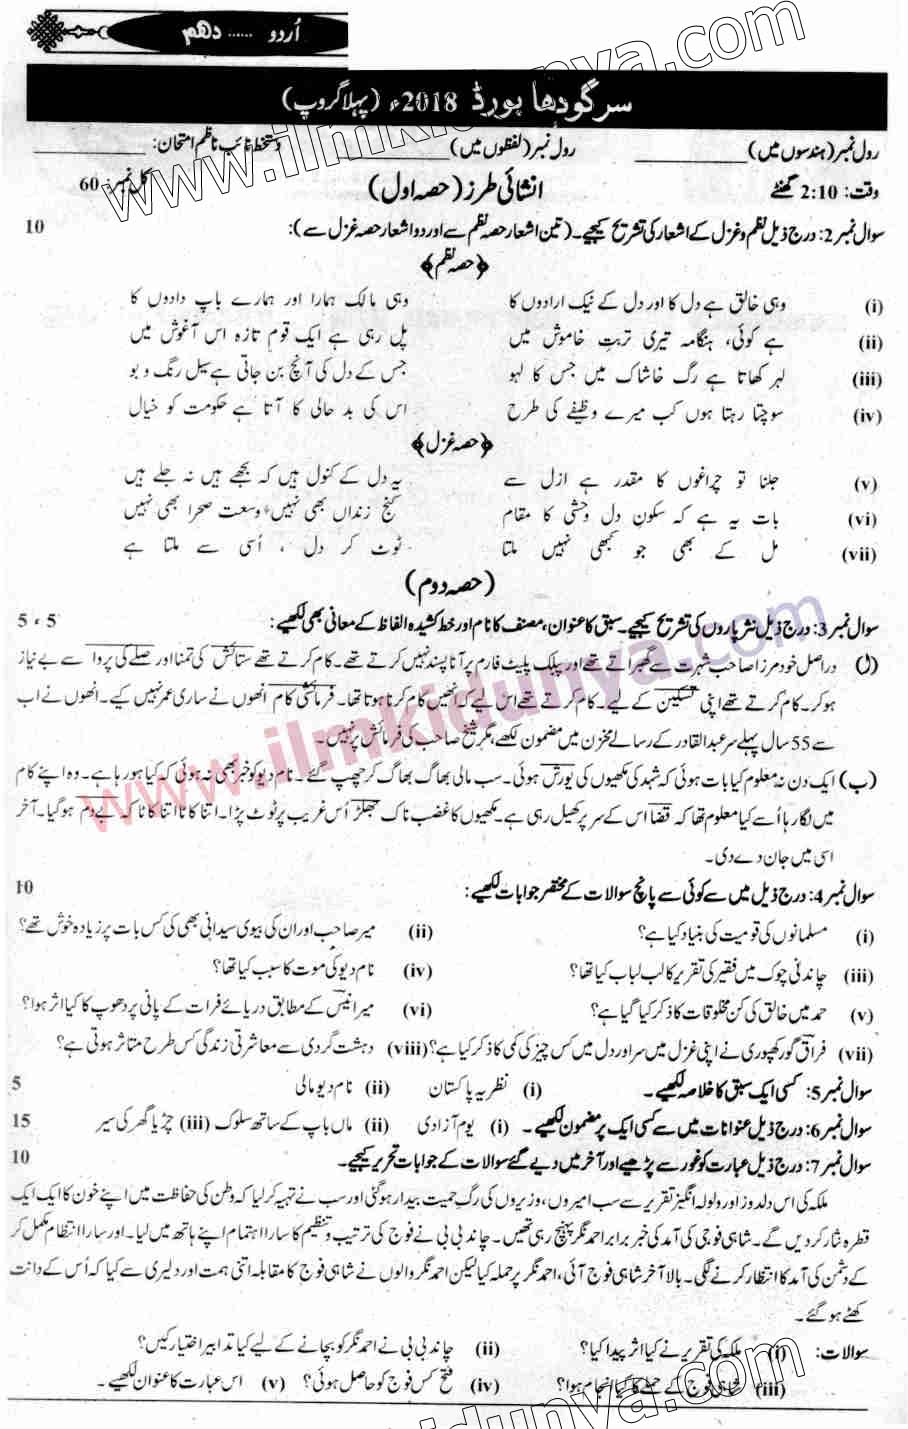 اُردو ...... دہم
سرگودھا بورڈ 2018ء (پہلا گروپ)
رول نمبر (ہندسوں میں) ____________ رول نمبر (لفظوں میں) ____________ دستخط نائب ناظم امتحان: ____________
وقت: 2:10 گھنٹے انشائی طرز (حصہ اول) کل نمبر: 60
سوال نمبر 2: درج ذیل نظم و غزل کے اشعار کی تشریح کیجیے۔ (تین اشعار حصہ نظم سے اور دو اشعار حصہ غزل سے): 10
﴿حصہ نظم﴾
(i) وہی خالق ہے دل کا اور دل کے نیک ارادوں کا وہی مالک ہمارا اور ہمارے باپ دادوں کا
(ii) ہے کوئی، ہنگامہ تیری تربتِ خاموش میں پل رہی ہے ایک قوم تازہ اس آغوش میں
(iii) لہر کھاتا ہے رگ خاشاک میں جس کا لہو جس کے دل کی آنچ بن جاتی ہے سیل رنگ و بو
(iv) سوچتا رہتا ہوں کب میرے وظیفے کی طرح اس کی بد حالی کا آتا ہے حکومت کو خیال
﴿حصہ غزل﴾
(v) جلنا تو چراغوں کا مقدر ہے ازل سے یہ دل کے کنول ہیں کہ بجھے ہیں نہ جلے ہیں
(vi) بات یہ ہے کہ سکونِ دل وحشی کا مقام کنج زنداں بھی نہیں، وسعت صحرا بھی نہیں
(vii) مل کے بھی جو کبھی نہیں ملتا ٹوٹ کر دل ، اُسی سے ملتا ہے
(حصہ دوم)
سوال نمبر 3: درج ذیل نثر پاروں کی تشریح کیجیے۔ سبق کا عنوان، مصنف کا نام اور خط کشیدہ الفاظ کے معانی بھی لکھیے: 5 ، 5
(ل) دراصل خود مرزا صاحب شہرت سے گھبراتے تھے اور پبلک پلیٹ فارم پر آنا پسند نہیں کرتے تھے۔ کام کرتے تھے ستائش کی تمنا اور صلے کی پروا سے بے نیاز
ہو کر۔ کام کرتے تھے اپنی تسکین کے لیے۔ کام کرتے تھے اس لیے کہ انھیں کام کرنا ہوتا تھا۔ فرمائشی کام انھوں نے ساری عمر نہیں کیے۔ انھوں نے اب
سے 55 سال پہلے سر عبدالقادر کے رسالے مخزن میں مضمون لکھے، مگر شیخ صاحب کی فرمائش پر نہیں۔
(ب) ایک دن نہ معلوم کیا بات ہوئی کہ شہد کی مکھیوں کی یورش ہوئی۔ سب مالی بھاگ بھاگ کر چھپ گئے۔ نام دیو کو خبر بھی نہ ہوئی کہ کیا ہو رہا ہے۔ وہ اپنے کام
میں لگا رہا اُسے کیا معلوم تھا کہ قضا اس کے سر پر کھیل رہی ہے۔ مکھیوں کا غضب ناک جھلڑ اُس غریب پر ٹوٹ پڑا۔ اتنا کاٹا اتنا کاٹا کہ بے دم ہو گیا۔ آخر
اسی میں جان دے دی۔
سوال نمبر 4: درج ذیل میں سے کوئی سے پانچ سوالات کے مختصر جوابات لکھیے: 10
(i) مسلمانوں کی قومیت کی بنیاد کیا ہے؟ (ii) میر صاحب اور ان کی بیوی سیدانی بھی کی کس بات پر زیادہ خوش تھے؟
(iii) چاندنی چوک میں فقیر کی تقریر کا لب لباب کیا تھا؟ (iv) نام دیو کی موت کا سبب کیا تھا؟
(v) حمد میں خالق کی کن مخلوقات کا ذکر کیا گیا ہے؟ (vi) میر انیسؔ کے مطابق دریائے فرات کے پانی پر دھوپ کا کیا اثر ہوا؟
(vii) فراقؔ گورکھپوری نے اپنی غزل میں سر اور دل میں کس چیز کی کمی کا ذکر کیا ہے؟ (viii) دہشت گردی سے معاشرتی زندگی کس طرح متاثر ہوتی ہے؟
سوال نمبر 5: کسی ایک سبق کا خلاصہ لکھیے۔ (i) نظریہ پاکستان (ii) نام دیو مالی 5
سوال نمبر 6: درج ذیل عنوانات میں سے کسی ایک پر مضمون لکھیے۔ (i) یوم آزادی (ii) ماں باپ کے ساتھ سلوک (iii) چڑیا گھر کی سیر 15
سوال نمبر 7: درج ذیل عبارت کو غور سے پڑھیے اور آخر میں دیے گئے سوالات کے جوابات تحریر کیجیے۔ 10
ملکہ کی اس دلدوز اور ولولہ انگیز تقریر سے سب امیروں، وزیروں کی رگِ حمیت بیدار ہو گئی اور سب نے تہیہ کر لیا کہ وطن کی حفاظت میں اپنے خون کا ایک ایک
قطرہ نثار کر دیں گے۔ شاہی فوج کی آمد کی خبر برابر احمد نگر پہنچ رہی تھیں۔ چاند بی بی نے فوج کی ترتیب و تنظیم کا سارا اہتمام اپنے ہاتھ میں لیا۔ اور سارا انتظام مکمل کر
کے دشمن کی آمد کا انتظار کرنے لگی۔ بالآخر شاہی فوج آئی، احمد نگر پر حملہ کیا لیکن احمد نگر والوں نے شاہی فوج کا مقابلہ اتنی ہمت اور دلیری سے کیا کہ اُس کے دانت
کھٹے ہو گئے۔
سوالات: (i) ملکہ کی تقریر نے کیا اثر پیدا کیا؟ (ii) چاند بی بی نے احمد نگر کو بچانے کے لیے کیا تدابیر اختیار کیں؟
(iii) شاہی فوج کے حملے کا کیا انجام ہوا؟ (iv) فتح کس فوج کو حاصل ہوئی؟ (v) اس عبارت کا عنوان لکھیے۔
www.ilmkidunya.com
www.ilmkidunya.com